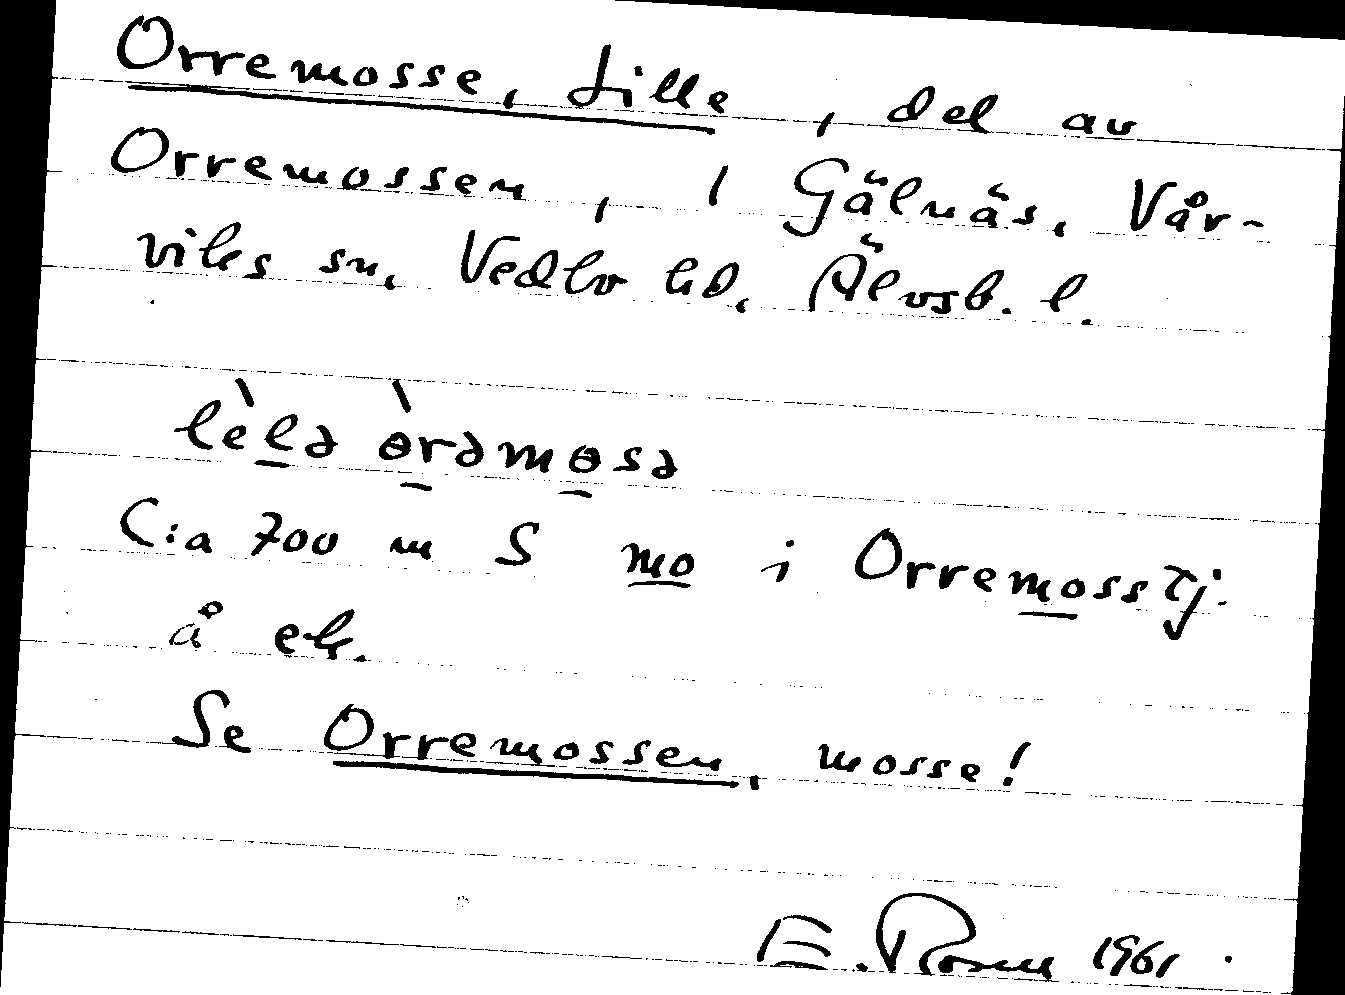 Orremosse, Lille, del av
Orremossen, i Gälnäs, Vår-
viks sn, Vedbo hd, Älvsb. l.
lèlə ɵ̀rəmɵsə
C:a 700 m S mo i Orremosstj.
å ek.
Se Orremossen, mosse!
E. Rosen 1961.